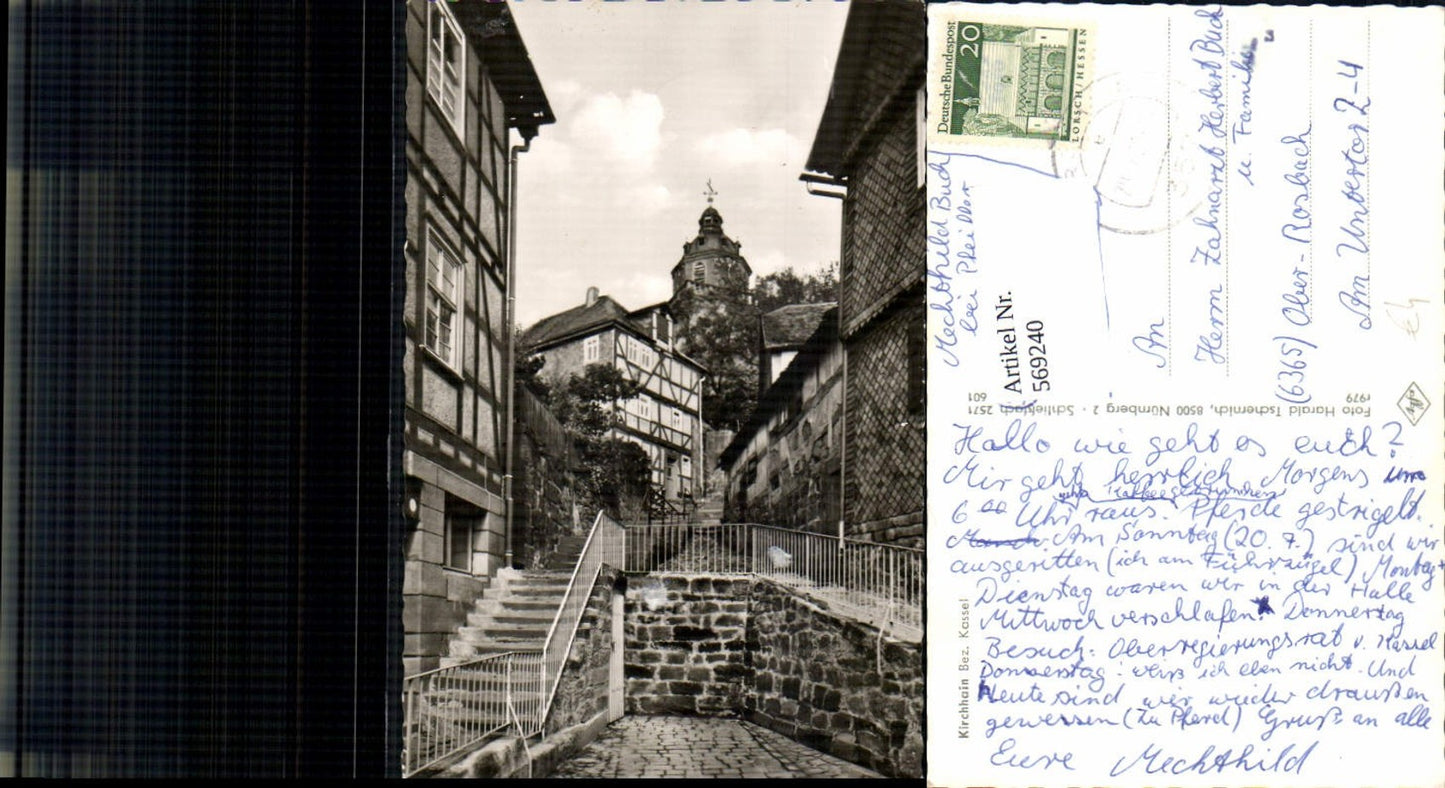 Deutsche Bundespost
20
LORSCH/HESSEN
Mechthild Buch
bei Pfeiffer
Artikel Nr.
569240
An
Herrn Zahnarzt Herbert Buch
u. Familie
(6365) Ober-Rosbach
Am Untertor 2-4
Foto Harald Tschernich, 8500 Nürnberg 2 · Schließfach 2571
1979
601
Agfa
Kirchhain Bez. Kassel
Hallo wie geht es euch?
Mir geht herrlich Morgens um
6 00 Uhr raus. Pferde gestriegelt.
Am Sonntag (20.7.) sind wir
ausgeritten (ich am Führzügel) Montag +
Dienstag waren wir in der Halle
Mittwoch verschlafen. Donnertag
Besuch: Oberregierungsrat v. Kassel
Donnerstag: weiß ich eben nicht. Und
Heute sind wir wieder draußen
gewessen (zu Pferd) Gruß an alle
Eure Mechthild